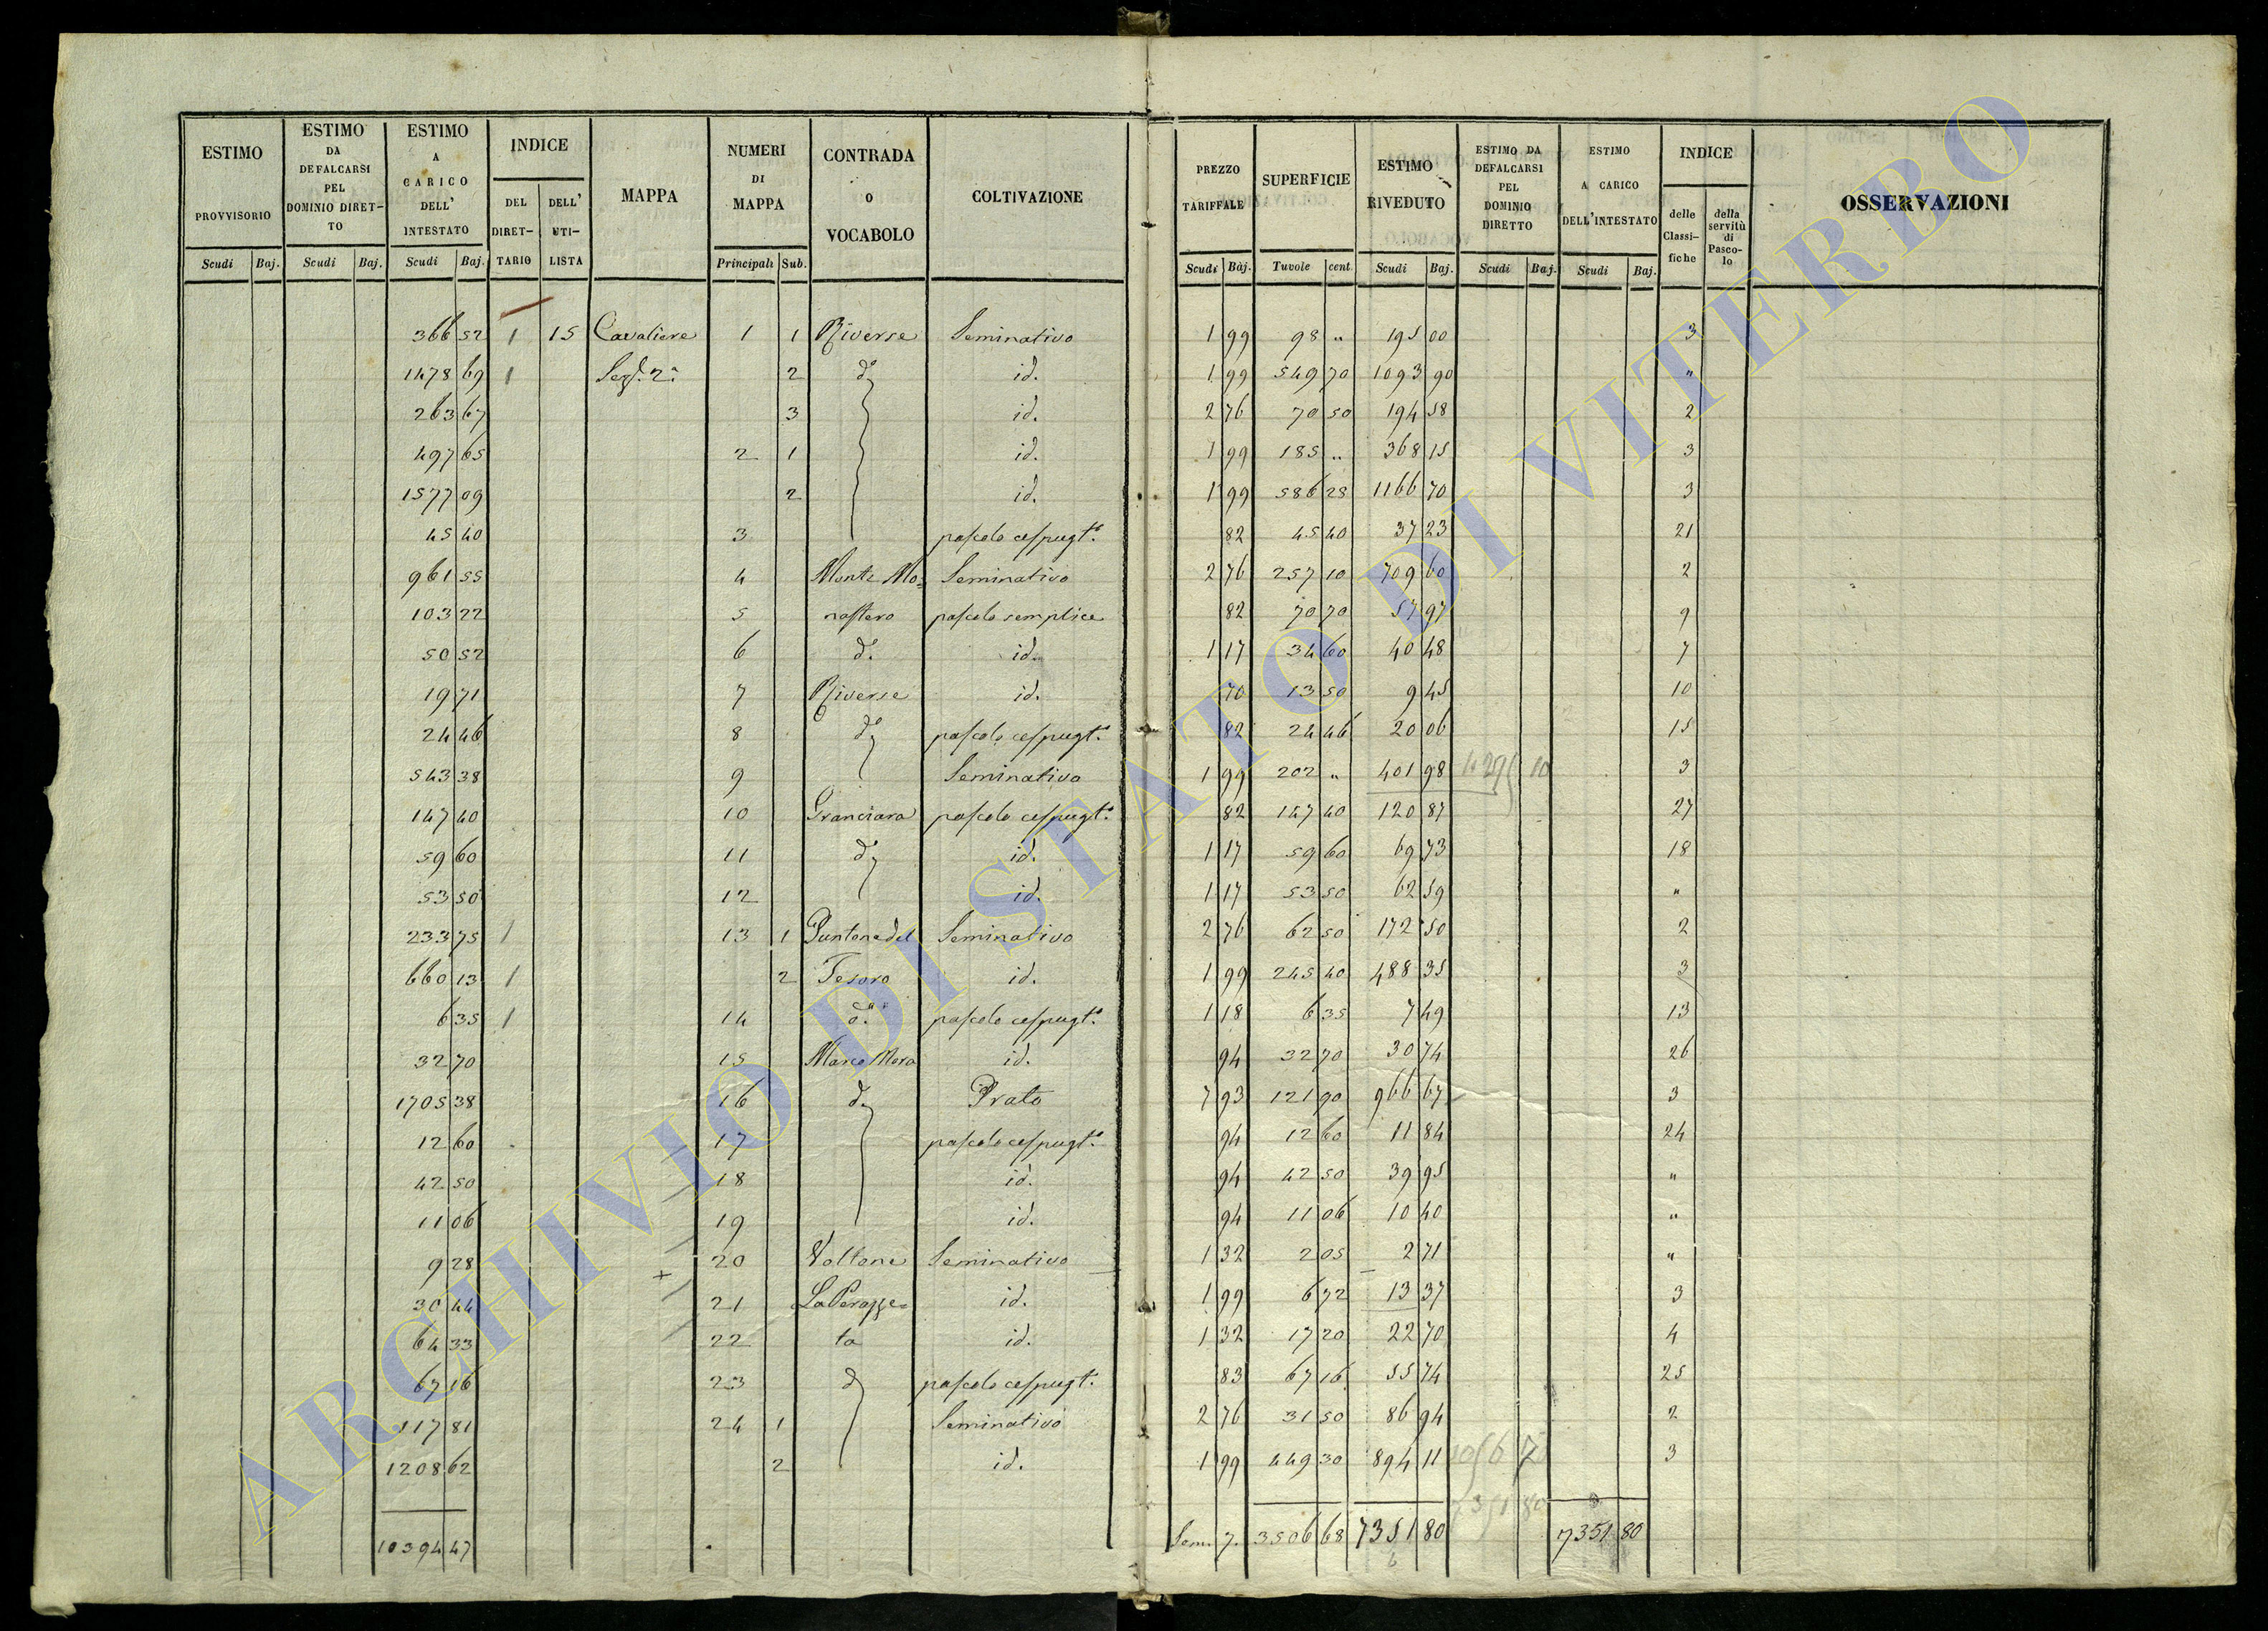 ESTIMO PROVVISORIO | ESTIMO DA DEFALCARSI PEL DOMINIO DIRET-TO | ESTIMO A CARICO DELL' INTESTATO | INDICE DEL DIRET-TARIO | DELL' UTI-LISTA | MAPPA | NUMERI DI MAPPA | CONTRADA O VOCABOLO | COLTIVAZIONE | PREZZO TARIFFALE | SUPERFICIE | ESTIMO RIVEDUTO | ESTIMO DA DEFALCARSI PEL DOMINIO DIRETTO | ESTIMO A CARICO DELL'INTESTATO | INDICE delle Classi-fiche | della servitù di Pasco-lo | OSSERVAZIONI
Scudi | Baj. | Scudi | Baj. | Scudi | Baj. | Principali | Sub. | Scudi | Baj. | Tavole | cent | Scudi | Baj. | Scudi | Baj. | Scudi | Baj.
366 52 | 1 | 15 | Cavaliere | 1 | 1 | Riverse | Seminativo | 1 99 | 98 " | 195 00 | 3
1478 69 | 1 | Sez. 2a | 2 | do | id. | 1 99 | 549 70 | 1093 90 | "
263 67 | 3 | id. | 2 76 | 70 50 | 194 58 | 2
497 65 | 2 | 1 | id. | 1 99 | 185 " | 368 15 | 3
1577 09 | 2 | id. | 1 99 | 586 28 | 1166 70 | 3
45 40 | 3 | pascolo cespugto. | 82 | 45 40 | 37 23 | 21
961 55 | 4 | Monte Mo= | Seminativo | 2 76 | 257 10 | 709 60 | 2
103 22 | 5 | nastero | pascolo semplice | 82 | 70 70 | 57 97 | 9
50 52 | 6 | do. | id. | 1 17 | 34 60 | 40 48 | 7
19 71 | 7 | Riverse | id. | 70 | 13 50 | 9 45 | 10
24 46 | 8 | do | pascolo cespugto. | 82 | 24 46 | 20 06 | 15
543 38 | 9 | Seminativo | 1 99 | 202 " | 401 98 | 3
147 40 | 10 | Granciara | pascolo cespugto. | 82 | 147 40 | 120 87 | 27
59 60 | 11 | do | id. | 1 17 | 59 60 | 69 73 | 18
53 50 | 12 | id. | 1 17 | 53 50 | 62 59 | "
233 75 | 1 | 13 | 1 | Puntone del | Seminativo | 2 76 | 62 50 | 172 50 | 2
660 13 | 1 | 2 | Tesoro | id. | 1 99 | 245 40 | 488 35 | 3
6 35 | 1 | 14 | do. | pascolo cespugto. | 1 18 | 6 35 | 7 49 | 13
32 70 | 15 | Marco Moro | id. | 94 | 32 70 | 30 74 | 26
1705 38 | 16 | do | Prato | 7 93 | 121 90 | 966 67 | 3
12 60 | 17 | pascolo cespugto. | 94 | 12 60 | 11 84 | 24
42 50 | 18 | id. | 94 | 42 50 | 39 95 | "
11 06 | 19 | id. | 94 | 11 06 | 10 40 | "
9 28 | 20 | Voltone | Seminativo | 1 32 | 2 05 | 2 71 | "
30 44 | + | 21 | La Perazze= | id. | 1 99 | 6 72 | 13 37 | 3
64 33 | 22 | ta | id. | 1 32 | 17 20 | 22 70 | 4
67 16 | 23 | d | pascolo cespugto. | 83 | 67 16 | 55 74 | 25
117 81 | 24 | 1 | Seminativo | 2 76 | 31 50 | 86 94 | 2
1208 62 | 2 | id. | 1 99 | 449 30 | 894 11 | 3
10394 47 | Som. 7. | 3506 68 | 7351 80 | 7351 80
ARCHIVIO DI STATO DI VITERBO